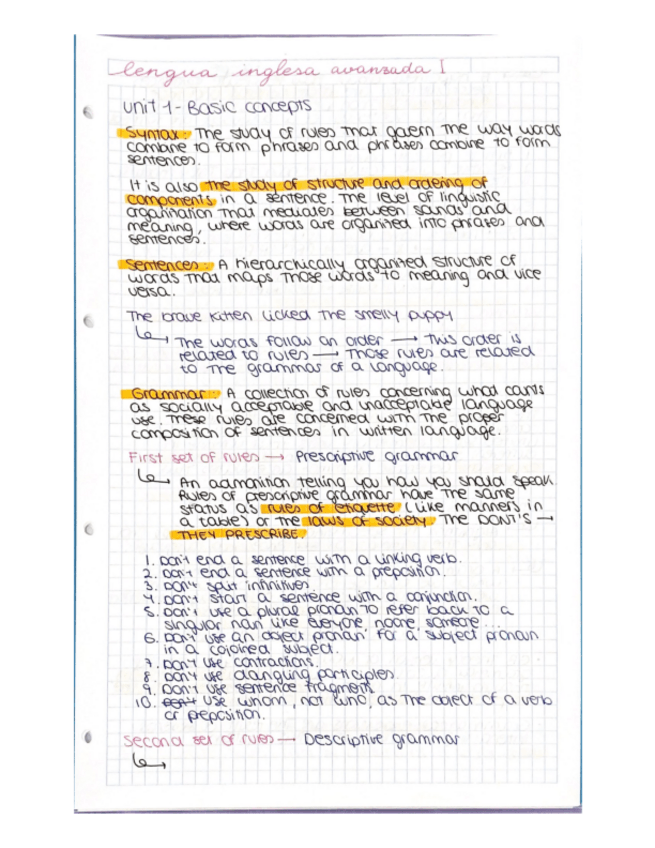 lengua inglesa avanzada I
Unit 1 - Basic concepts
Syntax: The study of rules that govern the way words
combine to form phrases and phrases combine to form
sentences.
It is also the study of structure and ordering of
components in a sentence. The level of linguistic
organisation that mediates between sounds and
meaning, where words are organised into phrases and
sentences.
Sentences: A hierarchically organised structure of
words that maps those words to meaning and vice
versa.
The brave kitten licked the smelly puppy
↳ The words follow an order → This order is
related to rules → Those rules are related
to the grammar of a language.
Grammar: A collection of rules concerning what counts
as socially acceptable and unacceptable language
use. These rules are concerned with the proper
composition of sentences in written language.
First set of rules → Prescriptive grammar
↳ An admonition telling you how you should speak
Rules of prescriptive grammar have the same
status as rules of etiquette (like manners in
a table) or the laws of society. The DONT'S →
THEY PRESCRIBE.
1. Don't end a sentence with a linking verb.
2. Don't end a sentence with a preposition.
3. Don't split infinitives
4. Don't start a sentence with a conjunction.
5. Don't use a plural pronoun to refer back to a
singular noun like everyone, noone, someone...
6. Don't use an object pronoun for a subject pronoun
in a cojoined subject.
7. Don't use contractions.
8. Don't use dangling participles
9. Don't use sentence fragments
10. Don't use whom, not who, as the object of a verb
or preposition.
Second set of rules → Descriptive grammar
↳